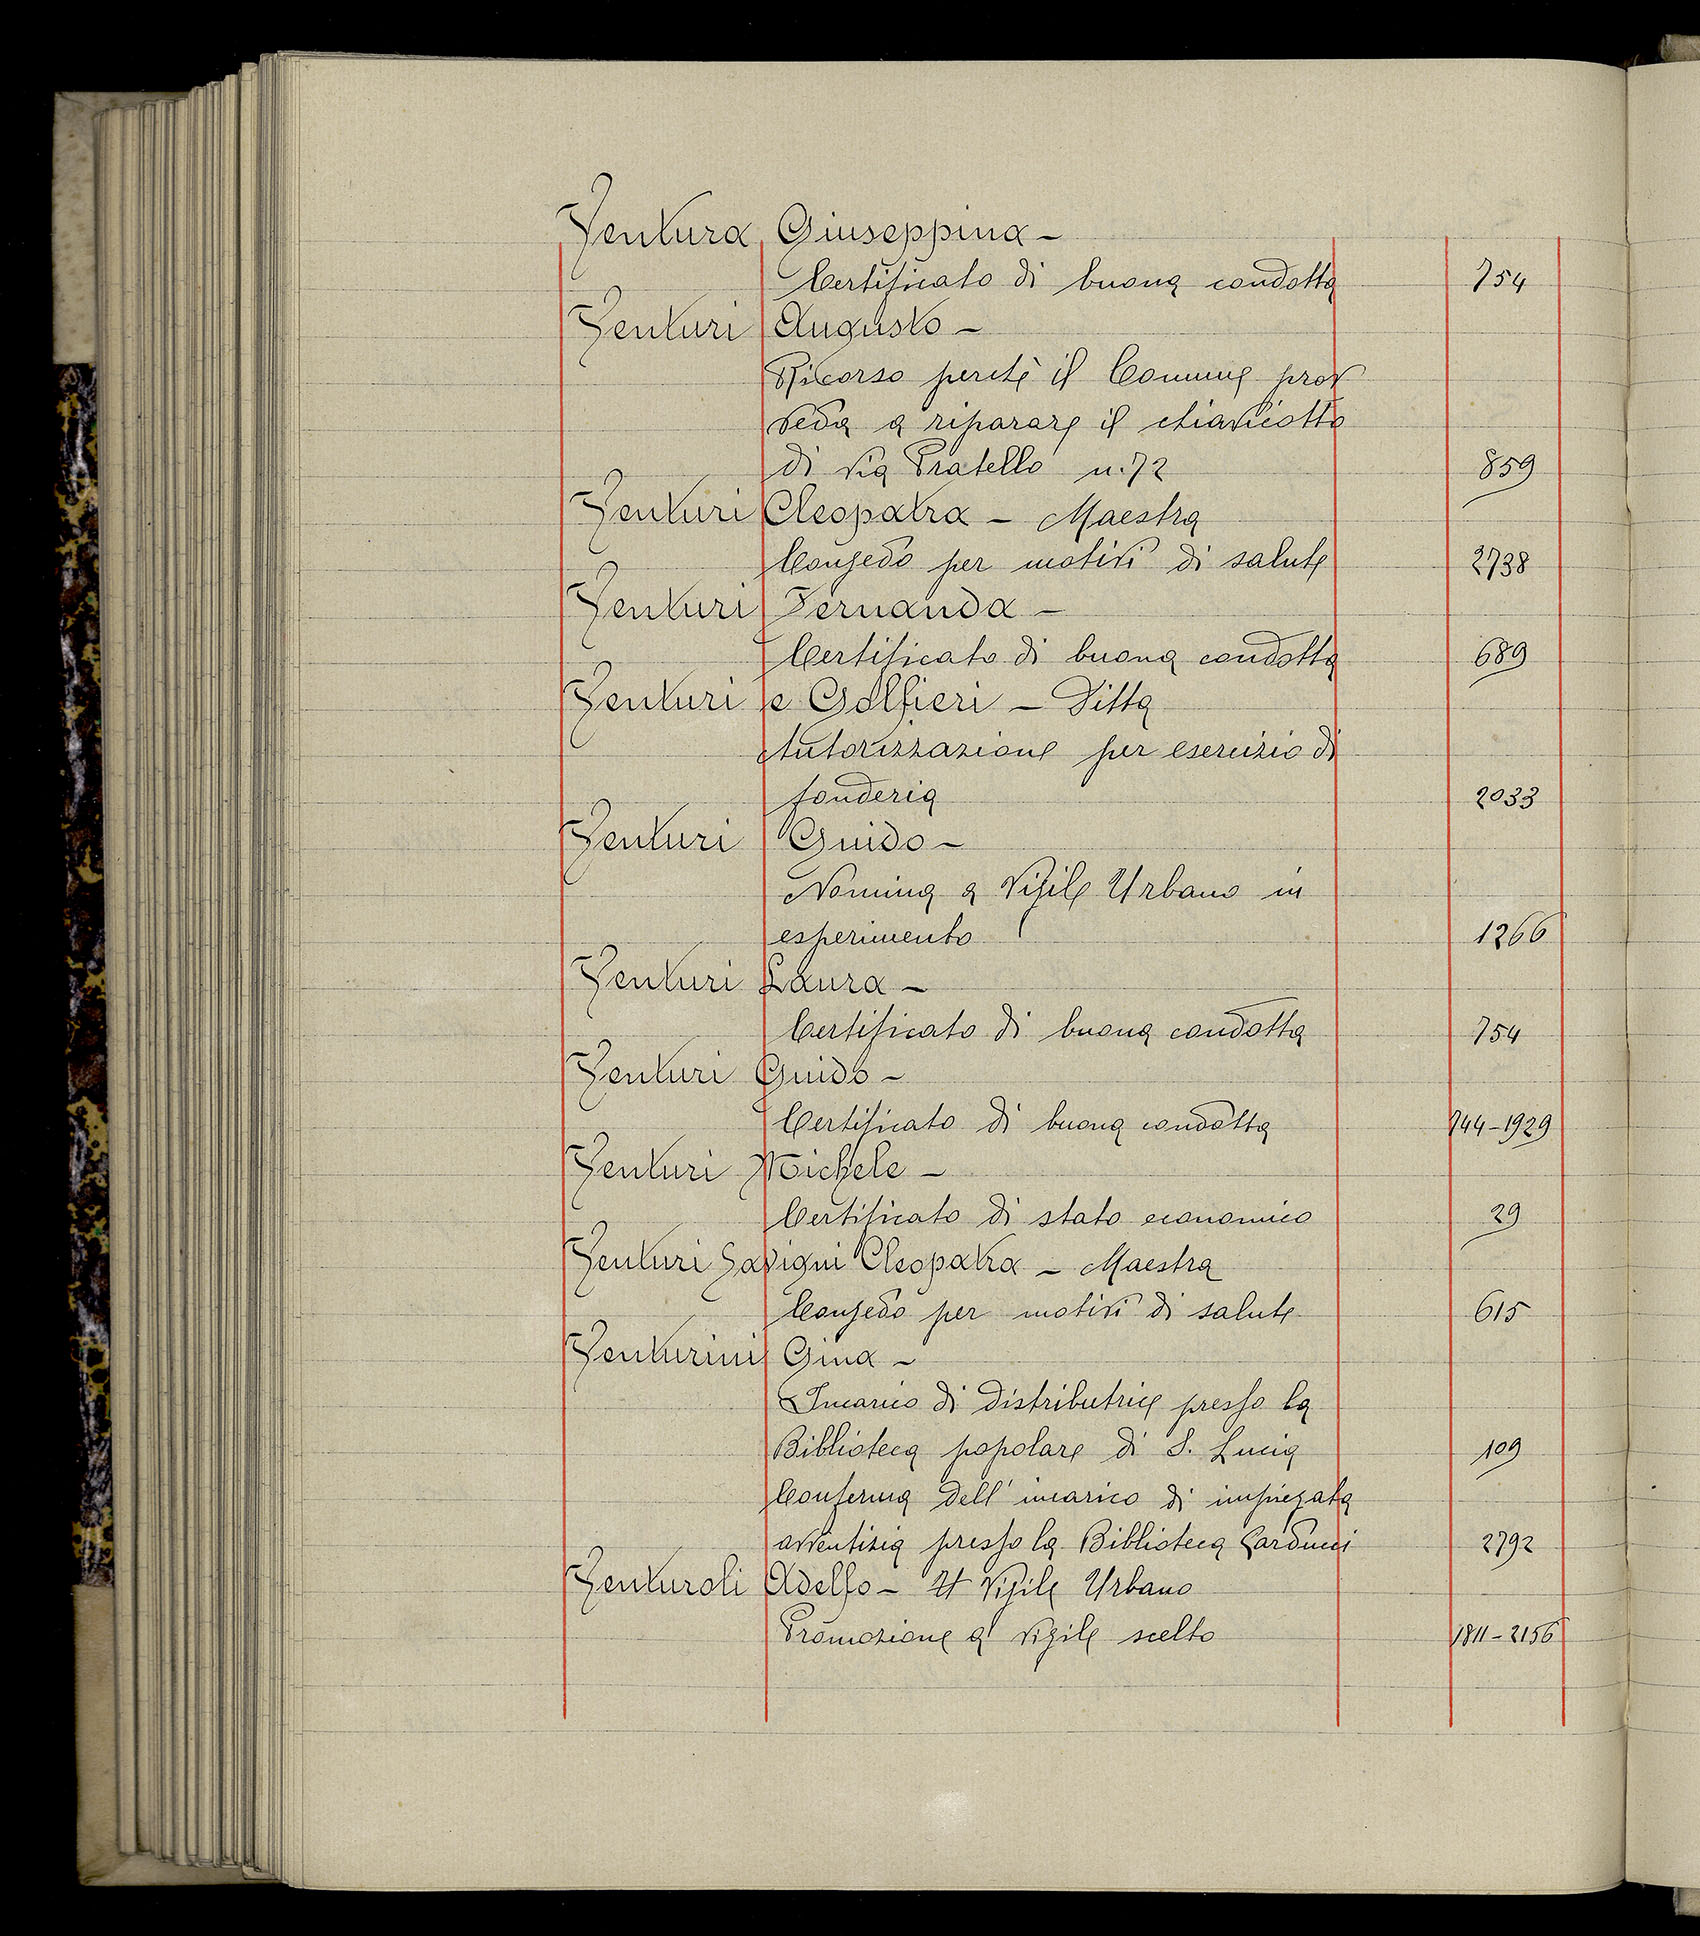 Ventura Giuseppina -
Certificato di buona condotta 754
Venturi Augusto -
Ricorso perchè il Comune prov
veda a riparare il chiavicotto
di via Pratello n. 72 859
Venturi Cleopatra - Maestra
Congedo per motivi di salute 2738
Venturi Fernanda -
Certificato di buona condotta 689
Venturi e Golfieri - Ditta
Autorizzazione per esercizio di
fonderia 2033
Venturi Guido -
Nomina a Vigile Urbano in
esperimento 1266
Venturi Laura -
Certificato di buona condotta 754
Venturi Guido -
Certificato di buona condotta 744-1929
Venturi Michele -
Certificato di stato economico 29
Venturi Savigni Cleopatra - Maestra
Congedo per motivi di salute 615
Venturini Gina -
Incarico di distributrice presso la
Biblioteca popolare di S. Lucia 109
Conferma dell'incarico di impiegata
avventizia presso la Biblioteca Carducci 2792
Venturoli Adelfo - Vigile Urbano
Promozione a vigile scelto 1811-2156